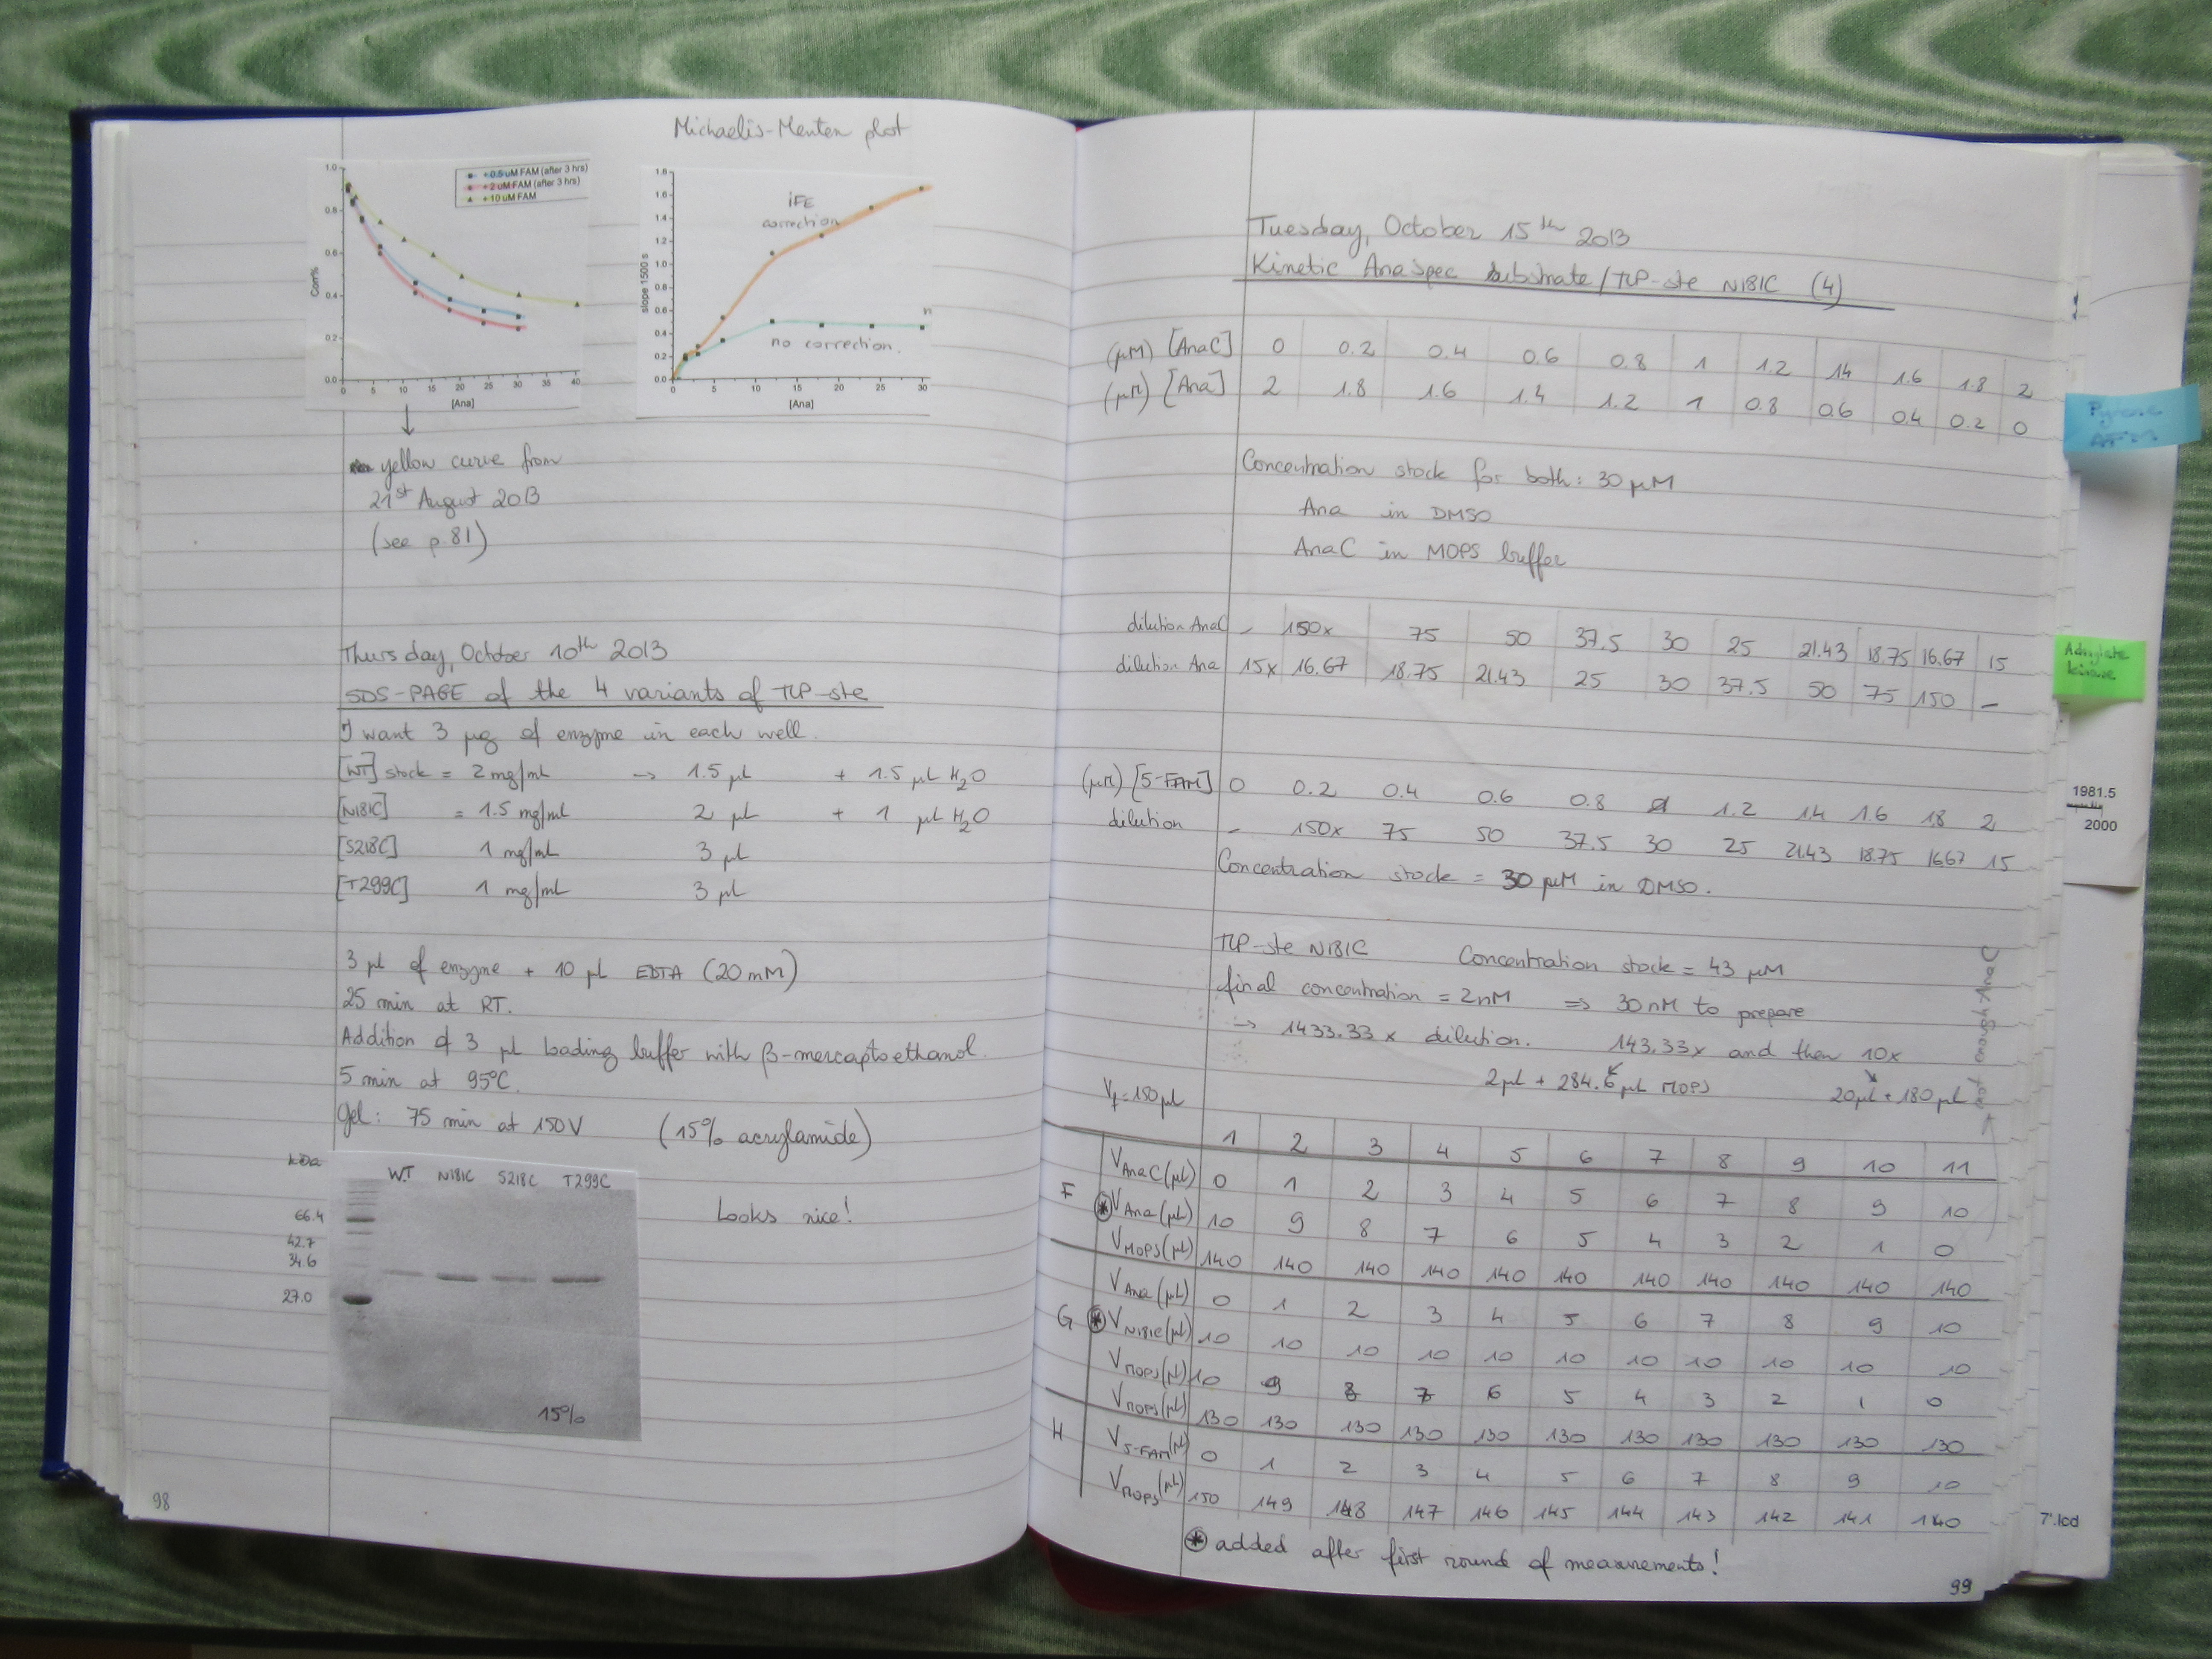 Michaelis-Menten plot
+ 0.5 uM FAM (after 3 hrs)
+ 2 uM FAM (after 3 hrs)
+ 10 uM FAM
1.0
0.8
0.6
0.4
0.2
0.0
Corr%
0 5 10 15 20 25 30 35 40
[Ana]
1.8
1.6
1.4
1.2
1.0
0.8
0.6
0.4
0.2
0.0
slope 1500 s
iFE
correction
no correction.
n
0 5 10 15 20 25 30
[Ana]
yellow curve from
21st August 2013
(see p.81)
Thursday, October 10th 2013
SDS-PAGE of the 4 variants of TLP-ste
I want 3 µg of enzyme in each well.
[WT] stock = 2 mg/mL → 1.5 µL + 1.5 µL H2O
[N181C] = 1.5 mg/mL 2 µL + 1 µL H2O
[S218C] 1 mg/mL 3 µL
[T299C] 1 mg/mL 3 µL
3 µL of enzyme + 10 µL EDTA (20 mM)
25 min at RT.
Addition of 3 µL loading buffer with β-mercaptoethanol.
5 min at 95°C.
Gel: 75 min at 150V (15% acrylamide)
kDa WT N181C S218C T299C
66.4
42.7
34.6
27.0
15%
Looks nice!
98
Tuesday, October 15th 2013
Kinetic Anaspec substrate/TLP-ste N181C (4)
(µM) [AnaC] 0 0.2 0.4 0.6 0.8 1 1.2 1.4 1.6 1.8 2
(µM) [Ana] 2 1.8 1.6 1.4 1.2 1 0.8 0.6 0.4 0.2 0
Concentration stock for both: 30 µM
Ana in DMSO
AnaC in MOPS buffer
dilution AnaC - 150x 75 50 37.5 30 25 21.43 18.75 16.67 15
dilution Ana 15x 16.67 18.75 21.43 25 30 37.5 50 75 150 -
(µM) [5-FAM] 0 0.2 0.4 0.6 0.8 1 1.2 1.4 1.6 1.8 2
dilution - 150x 75 50 37.5 30 25 21.43 18.75 16.67 15
Concentration stock = 30 µM in DMSO.
TLP-ste N181C Concentration stock = 43 µM
final concentration = 2nM ⇒ 30 nM to prepare
→ 1433.33 x dilution. 143.33x and then 10x
2µL + 284.6 µL MOPS 20µL + 180 µL
not enough AnaC
Vf = 150 µL
1 2 3 4 5 6 7 8 9 10 11
F
VAnaC (µL) 0 1 2 3 4 5 6 7 8 9 10
* VAna (µL) 10 9 8 7 6 5 4 3 2 1 0
VMOPS (µL) 140 140 140 140 140 140 140 140 140 140 140
G
VAna (µL) 0 1 2 3 4 5 6 7 8 9 10
* VN181C (µL) 10 10 10 10 10 10 10 10 10 10 10
VMOPS (µL) 10 9 8 7 6 5 4 3 2 1 0
VMOPS (µL) 130 130 130 130 130 130 130 130 130 130 130
H
V5-FAM (µL) 0 1 2 3 4 5 6 7 8 9 10
VMOPS (µL) 150 149 148 147 146 145 144 143 142 141 140
* added after first round of measurements!
99
Pyrene
Adenylate
kinase
1981.5
2000
7'.lcd